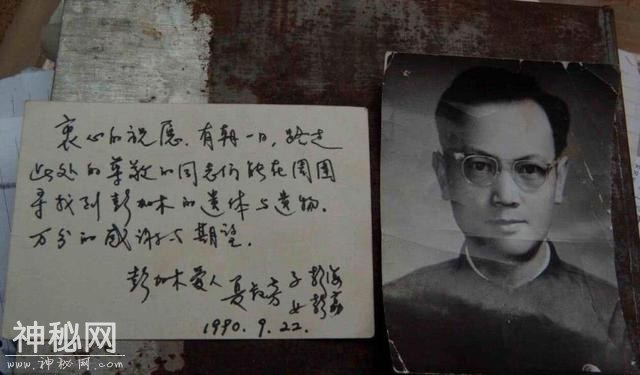 衷心的祝愿.有朝一日,路过
此处的尊敬的同志们能在周围
寻找到彭加木的遗体与遗物.
万分的感谢与期望.
彭加木爱人 夏叔芳 子 彭海
女 彭荔
1990.9.22.
神秘网
www.神秘网.com